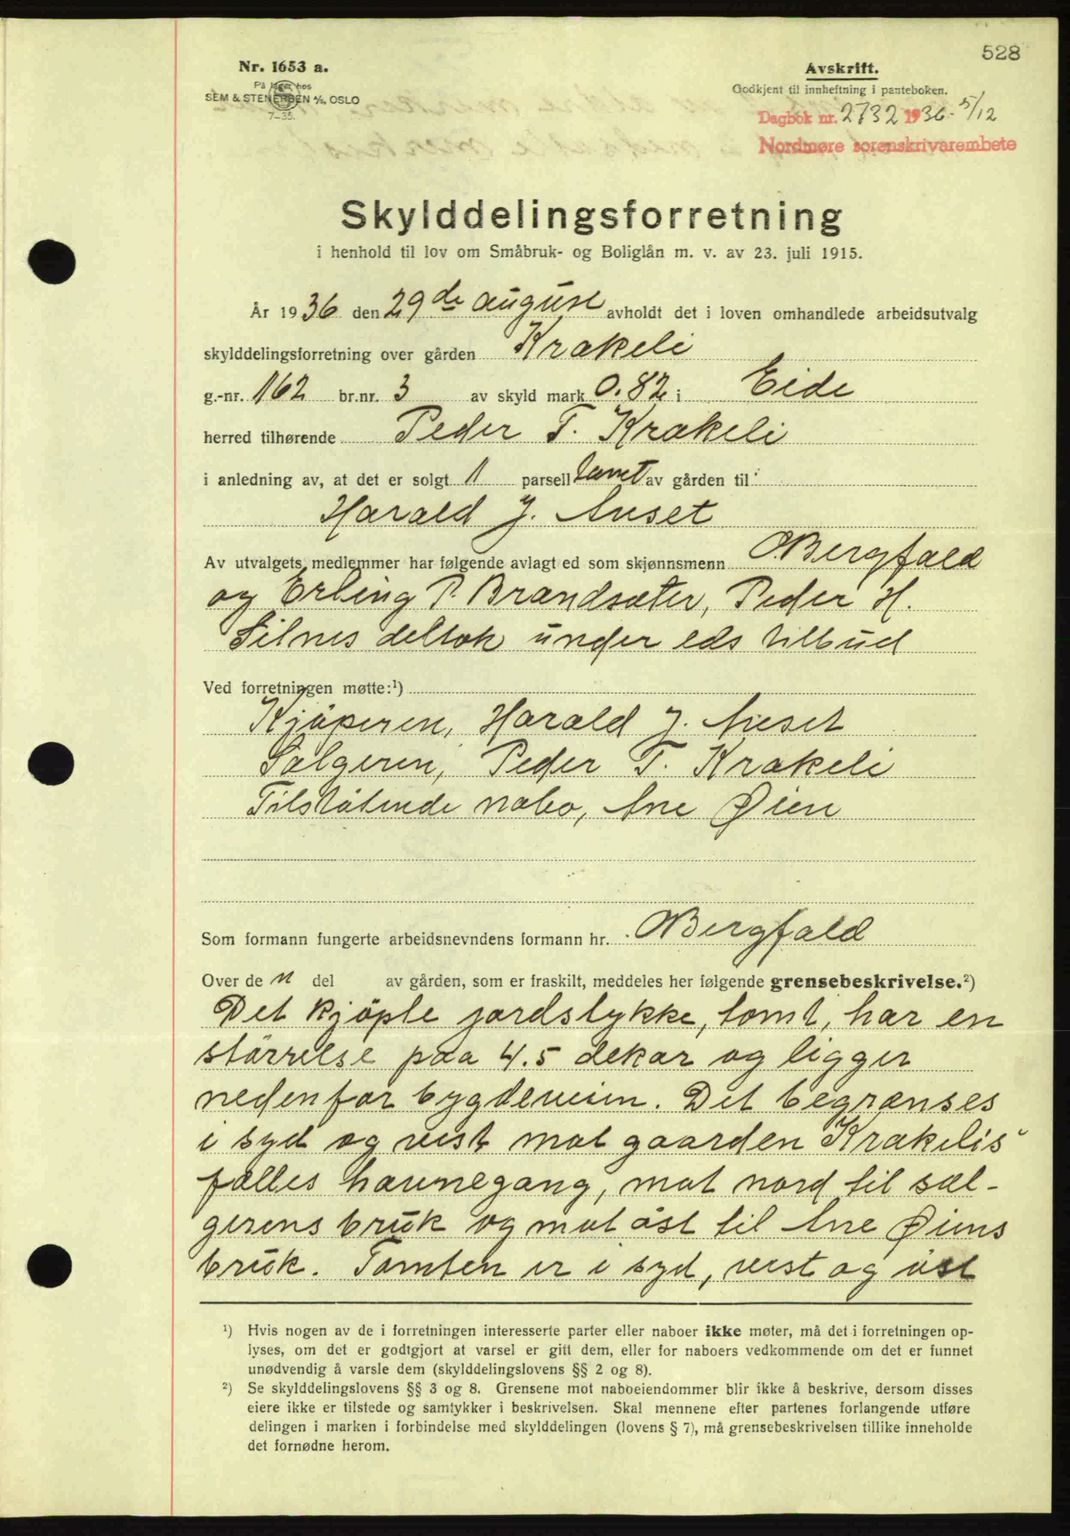 528
Nr. 1653 a.
På lager hos
SEM & STENERSEN A/S, OSLO
7-35.
Avskrift.
Godkjent til innheftning i panteboken.
Dagbok nr. 2732 1936 - 5/12
Nordmøre sorenskrivarembete
Skylddelingsforretning
i henhold til lov om Småbruk- og Boliglån m. v. av 23. juli 1915.
År 1936 den 29de august avholdt det i loven omhandlede arbeidsutvalg
skylddelingsforretning over gården Krakeli
g.-nr. 162 br.nr. 3 av skyld mark 0.82 i Eide
herred tilhørende Peder T. Krakeli
i anledning av, at det er solgt 1 parsell tomt av gården til
Harald J. Auset
Av utvalgets medlemmer har følgende avlagt ed som skjønnsmenn O. Bergfald
og Erling P. Brandsæter, Peder H.
Silnes deltok under eds tilbud
Ved forretningen møtte:¹)
Kjöperen, Harald J. Auset
Sælgeren, Peder T. Krakeli
Tilstötende nabo, Ane Øien
Som formann fungerte arbeidsnevndens formann hr. O. Bergfald
Over de n del av gården, som er fraskilt, meddeles her følgende grensebeskrivelse.²)
Det kjöpte jordstykke, tomt, har en
störrelse paa 4.5 dekar og ligger
nedenfor bygdeveien. Det begrænses
i syd og vest mot gaarden Krakelis
fælles havnegang, mot nord til sæl-
gerens bruk og mot öst til Ane Øiens
bruk. Tomten er i syd, vest og öst
¹) Hvis nogen av de i forretningen interesserte parter eller naboer ikke møter, må det i forretningen op-
lyses, om det er godtgjort at varsel er gitt dem, eller for naboers vedkommende om det er funnet
unødvendig å varsle dem (skylddelingslovens §§ 2 og 8).
²) Se skylddelingslovens §§ 3 og 8. Grensene mot naboeiendommer blir ikke å beskrive, dersom disses
eiere ikke er tilstede og samtykker i beskrivelsen. Skal mennene efter partenes forlangende utføre
delingen i marken i forbindelse med skylddelingen (lovens § 7), må grensebeskrivelsen tillike inneholde
det fornødne herom.